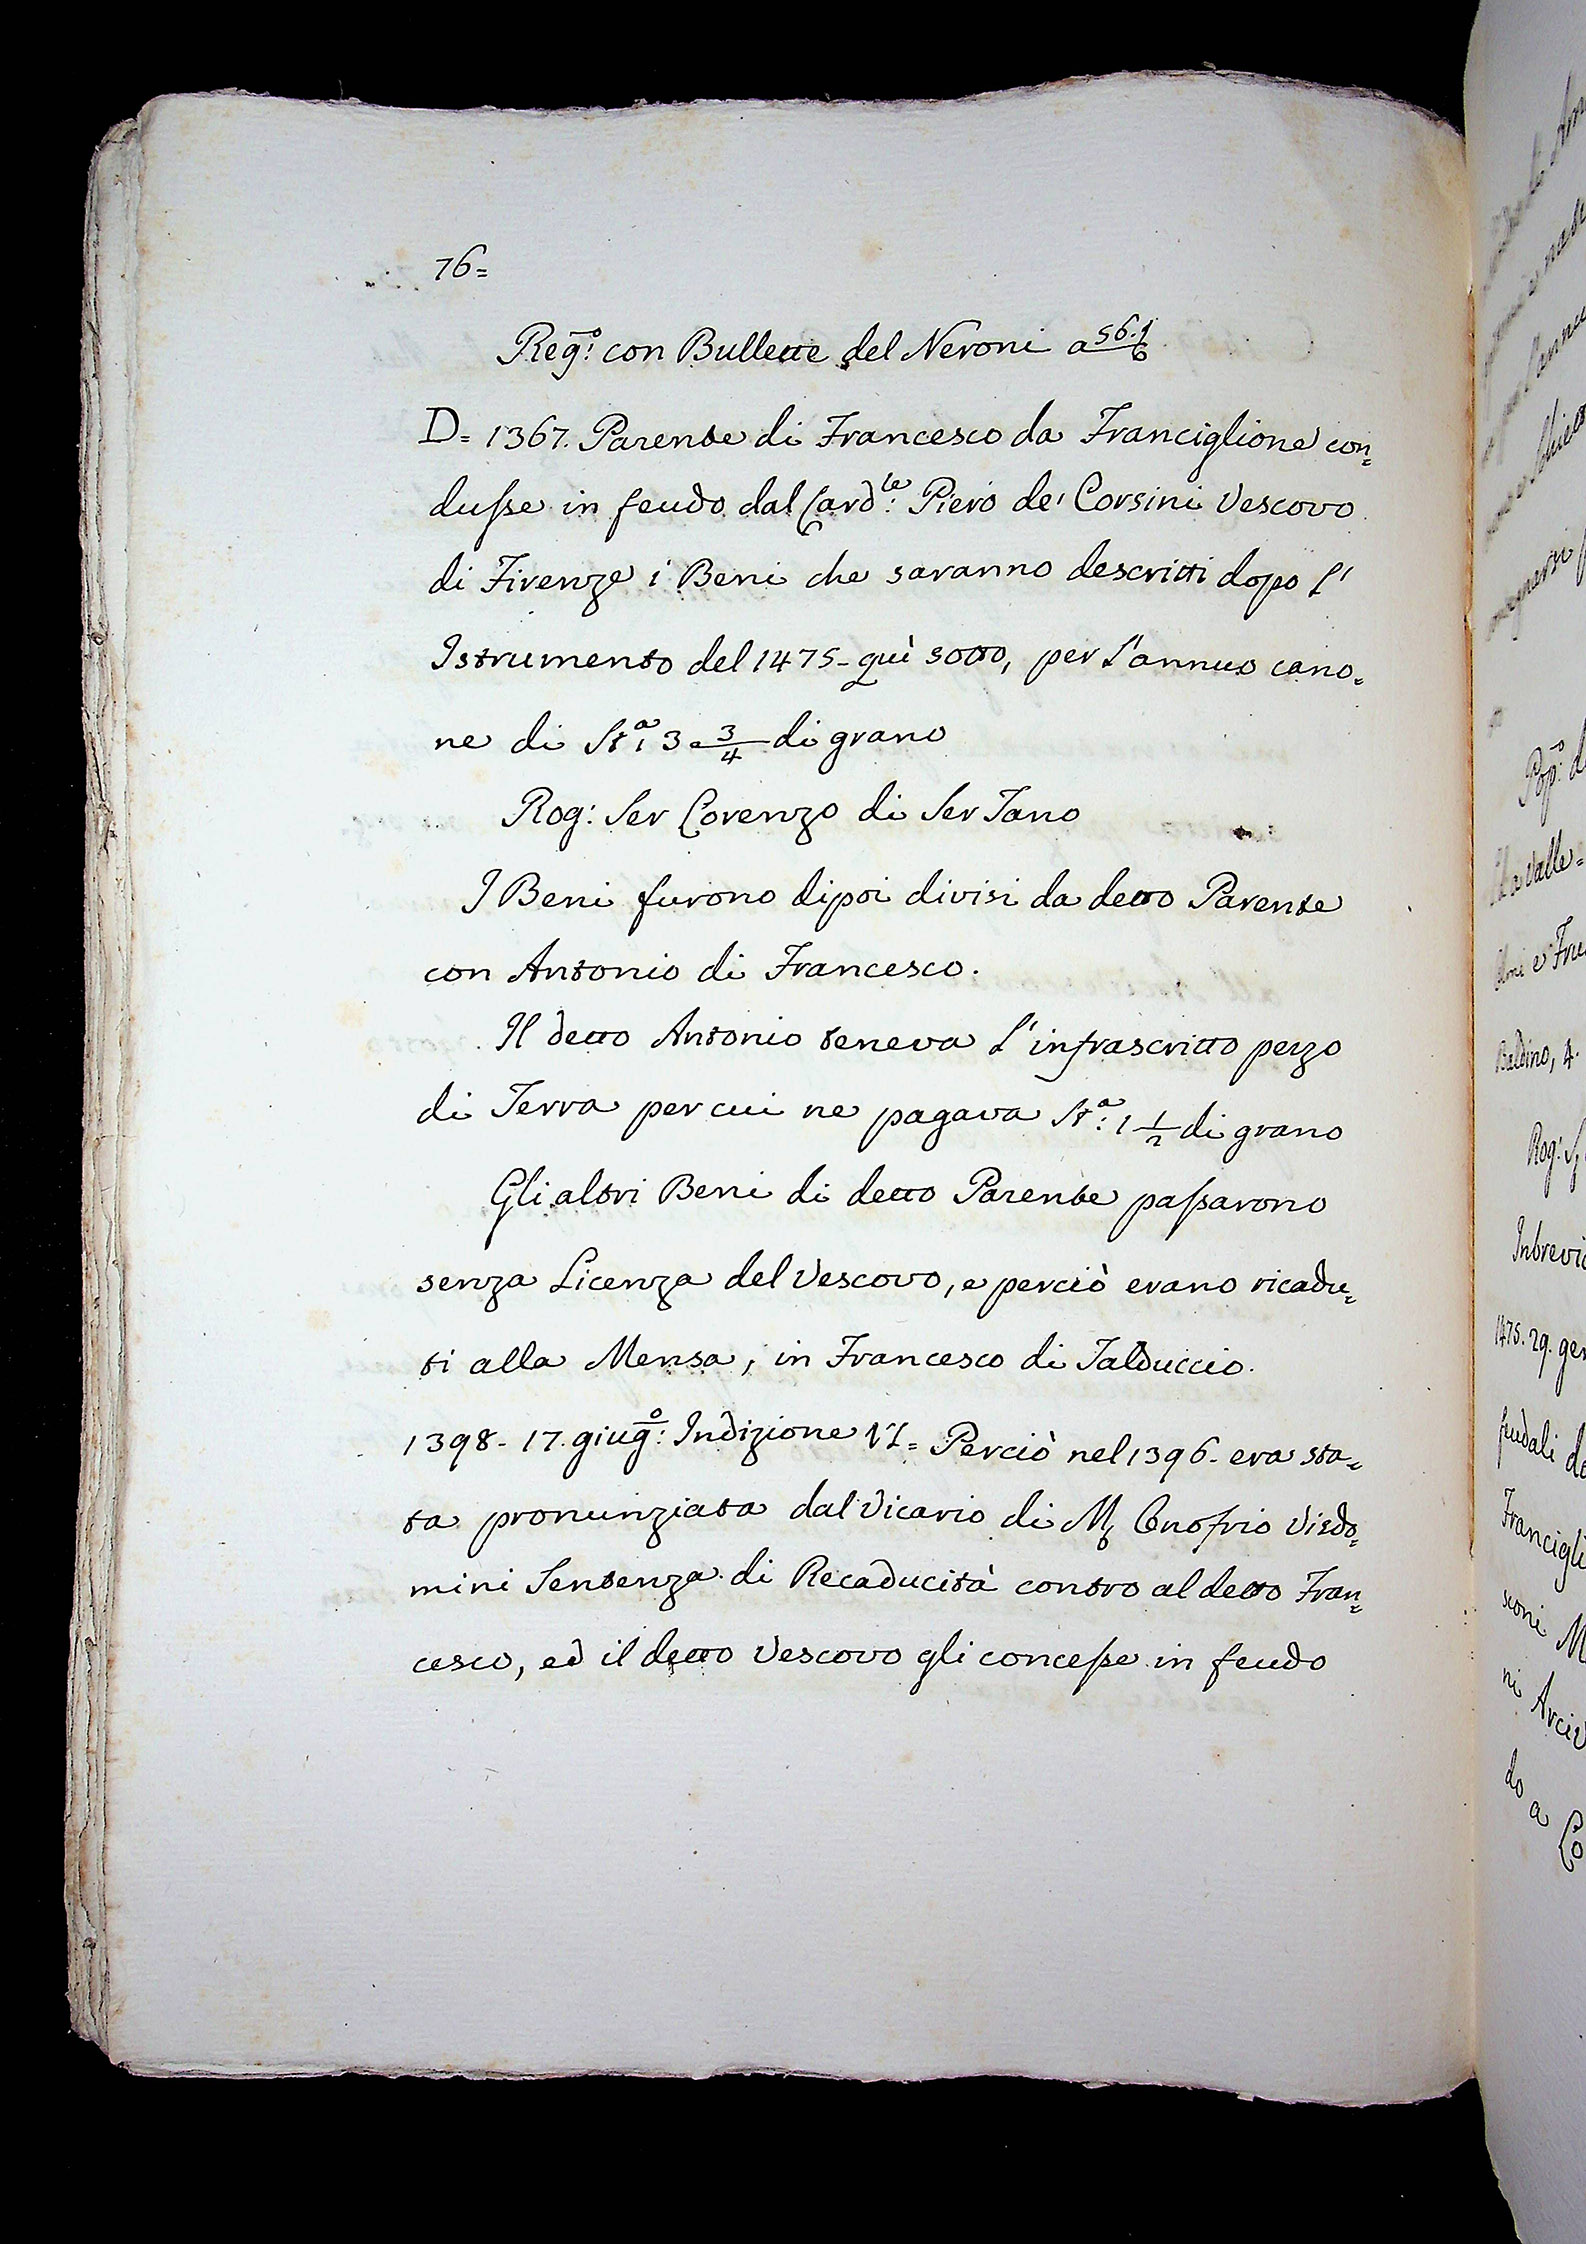 76=
Reg:º con Bullette del Neroni a 56.
D= 1367. Parente di Francesco da Franciglione con=
dusse in feudo dal Card:le Piero de' Corsini Vescovo
di Firenze i Beni che saranno descritti dopo l'
Istrumento del 1475- quì sotto, per l'annuo cano=
ne di St:a 3 e 3/4 di grano
Rog: Ser Lorenzo di Ser Tano
I Beni furono dipoi divisi da detto Parente
con Antonio di Francesco.
Il detto Antonio teneva l'infrascritto pezzo
di Terra per cui ne pagava St:a 1 1/2 di grano
Gli altri Beni di detto Parente passarono
senza Licenza del Vescovo, e perciò erano ricadu=
ti alla Mensa, in Francesco di Talduccio.
1398- 17. giug:º Indizione VI= Perciò nel 1396- era sta=
ta pronunziata dal Vicario di M Onofrio Visdo=
mini Sentenza di Recaducità contro al detto Fran=
cesco, ed il detto Vescovo gli concesse in feudo
Pop:º
Valle=
e Fru
Baldino, 4.
Rog:
Inbrevi
1475. 29. gen
feudali de
Francigli
sconi M
ni Arciv
do a Lo